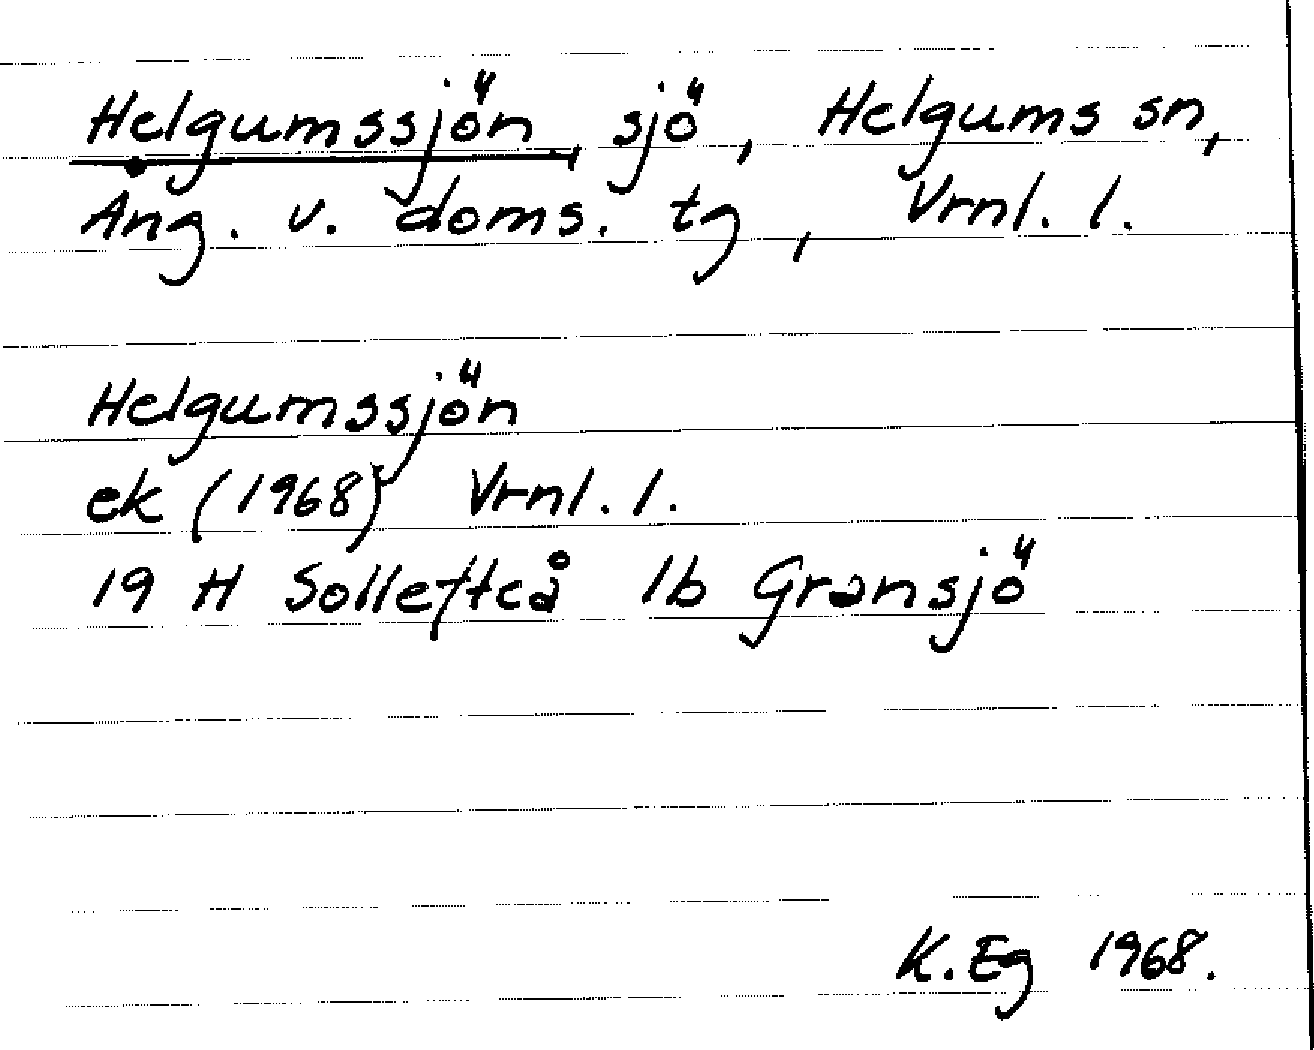 Helgumssjön, sjö, Helgums sn,
Ång. v. doms. tg, Vrnl. l.
Helgumssjön
ek (1968) Vrnl. l.
19 H Sollefteå 1b Gransjö
K. Eg 1968.